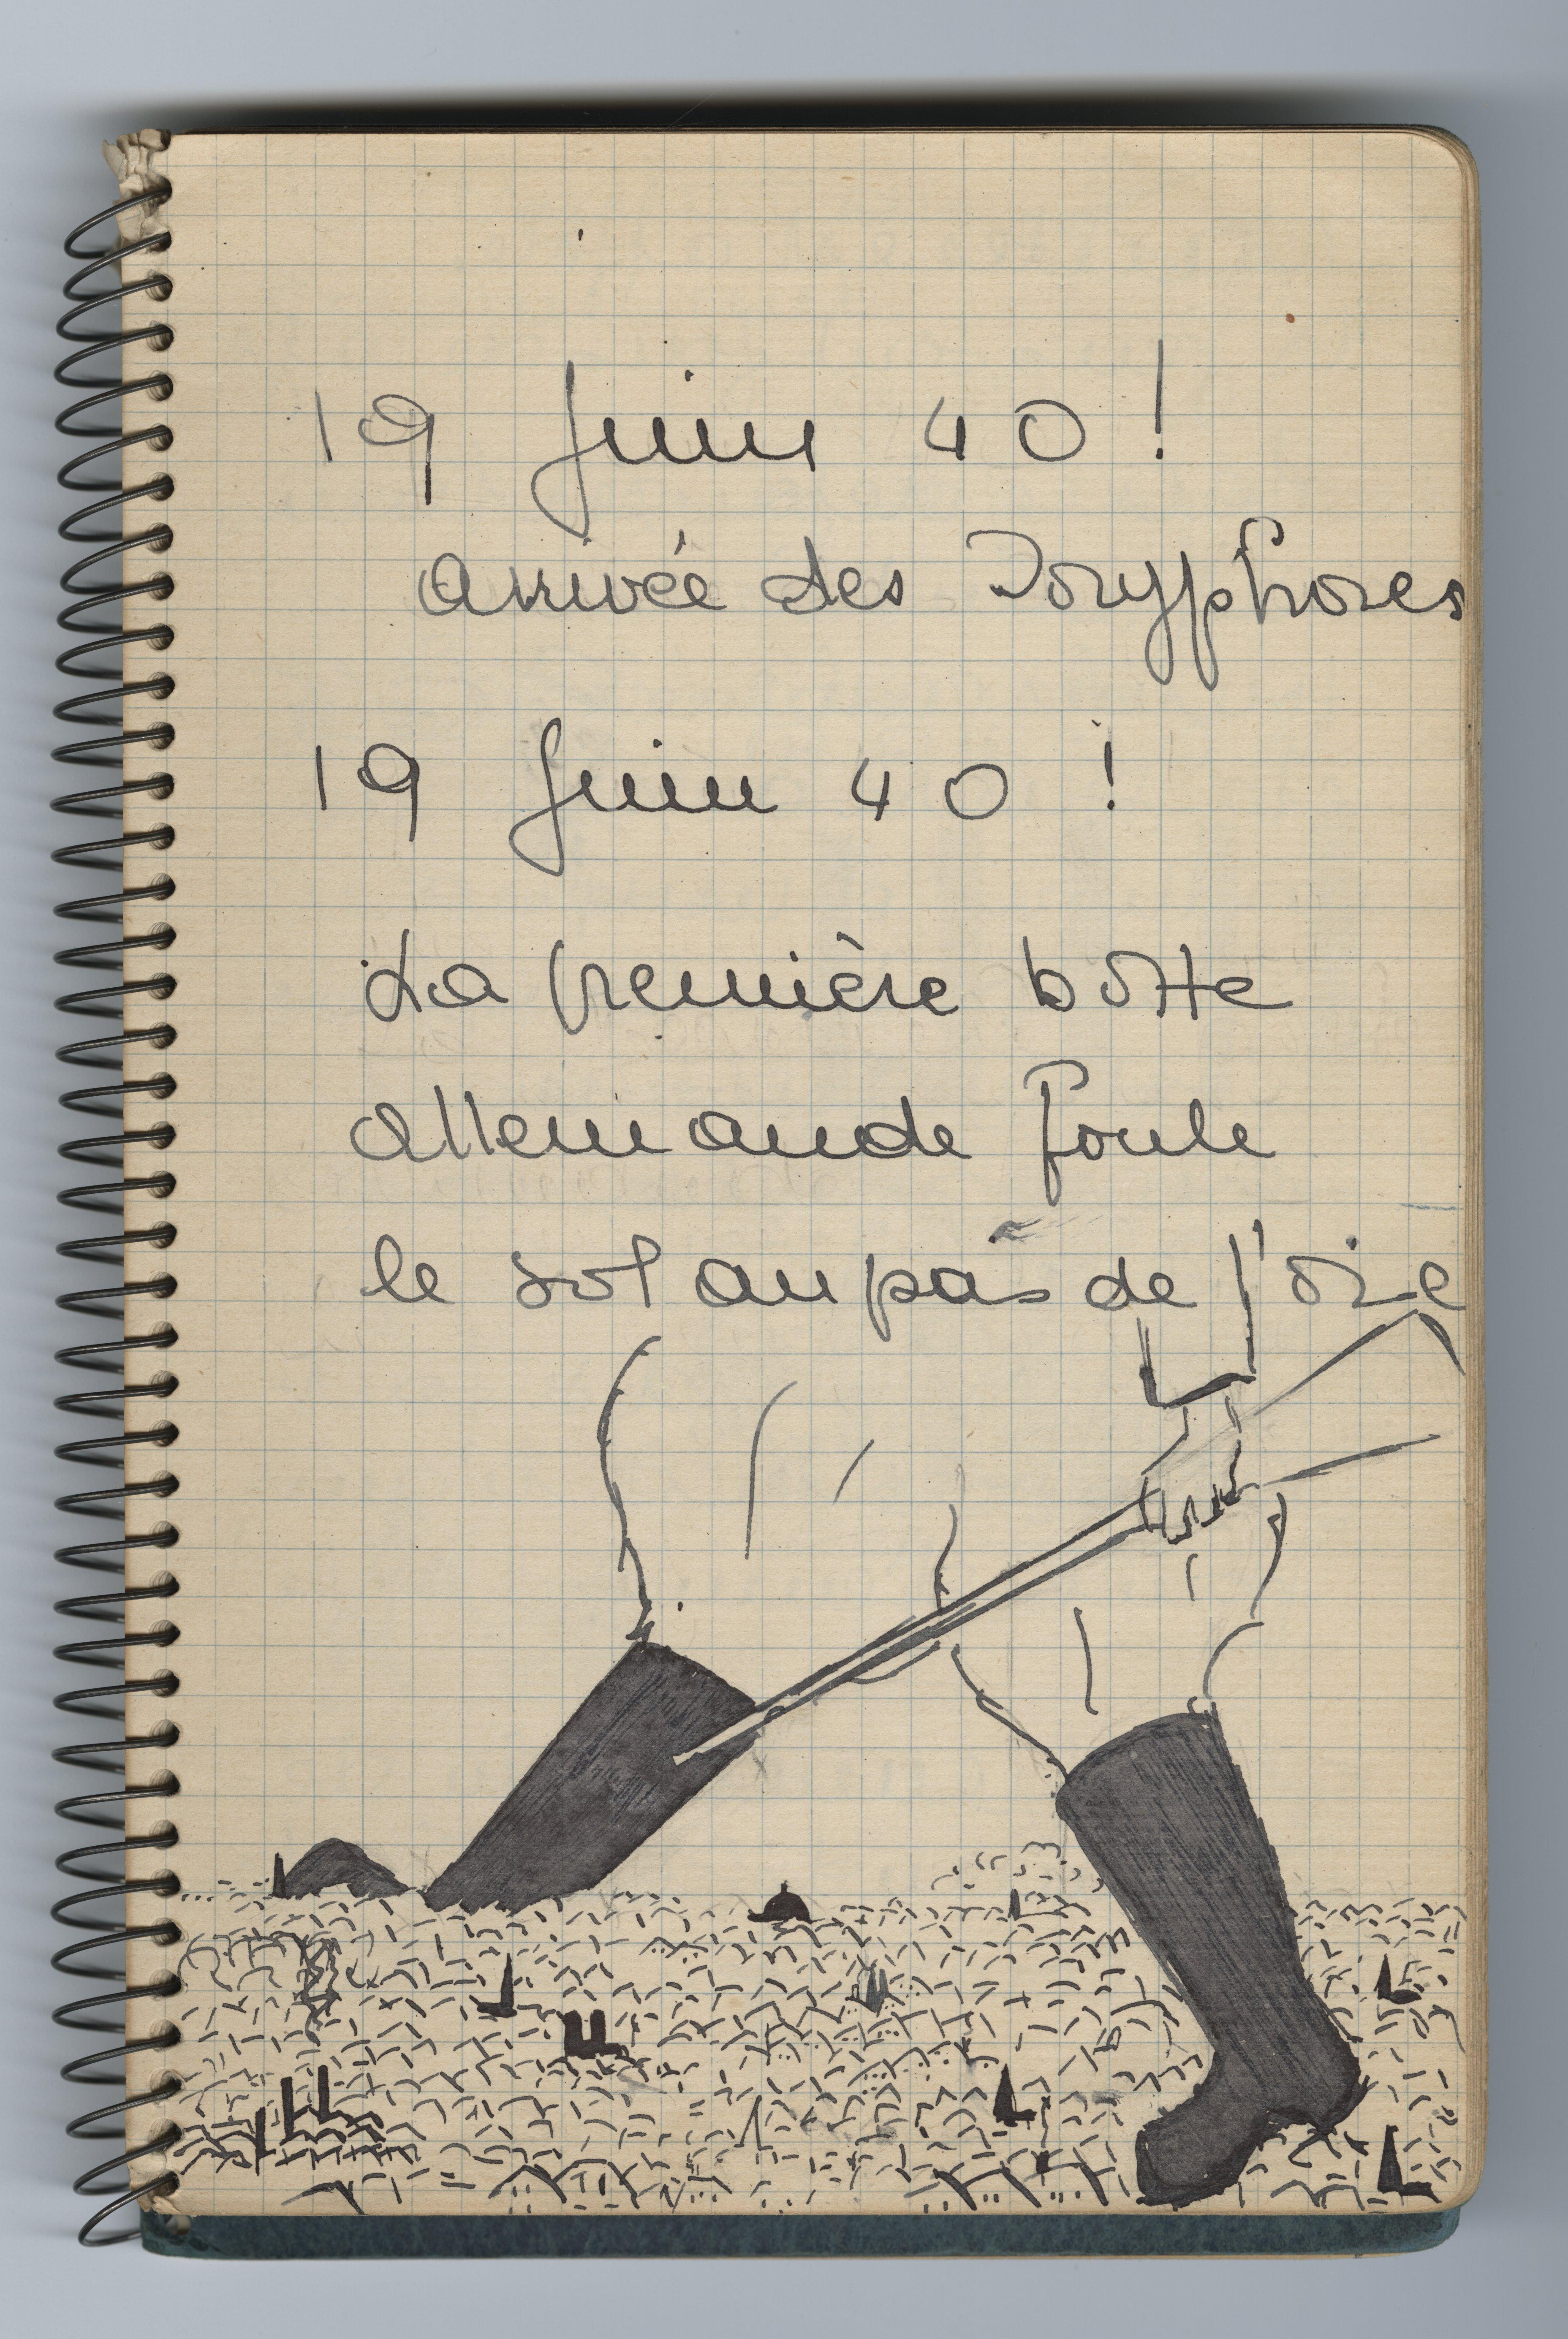 19 Juin 40 !
arrivée des Doryphores
19 Juin 40 !
La première botte
allemande foule
le sol au pas de l'oie